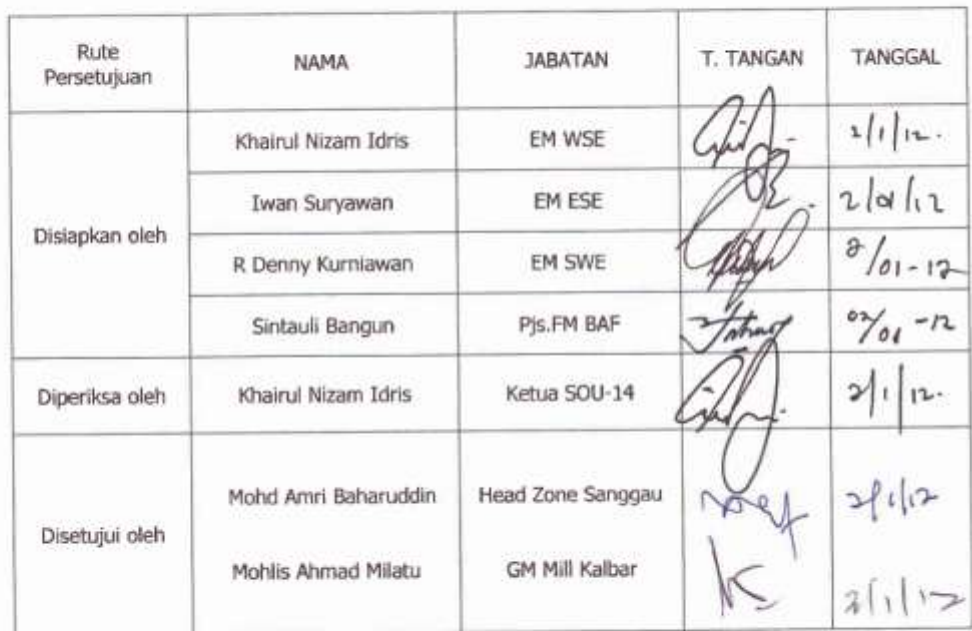 Rute
Persetujuan
NAMA
JABATAN
T. TANGAN
TANGGAL
Disiapkan oleh
Khairul Nizam Idris
EM WSE
2/1/12.
Iwan Suryawan
EM ESE
2/01/12
R Denny Kurniawan
EM SWE
2/01-12
Sintauli Bangun
Pjs.FM BAF
02/01-12
Diperiksa oleh
Khairul Nizam Idris
Ketua SOU-14
2/1/12.
Disetujui oleh
Mohd Amri Baharuddin
Head Zone Sanggau
2/1/12
Mohlis Ahmad Milatu
GM Mill Kalbar
2/1/12